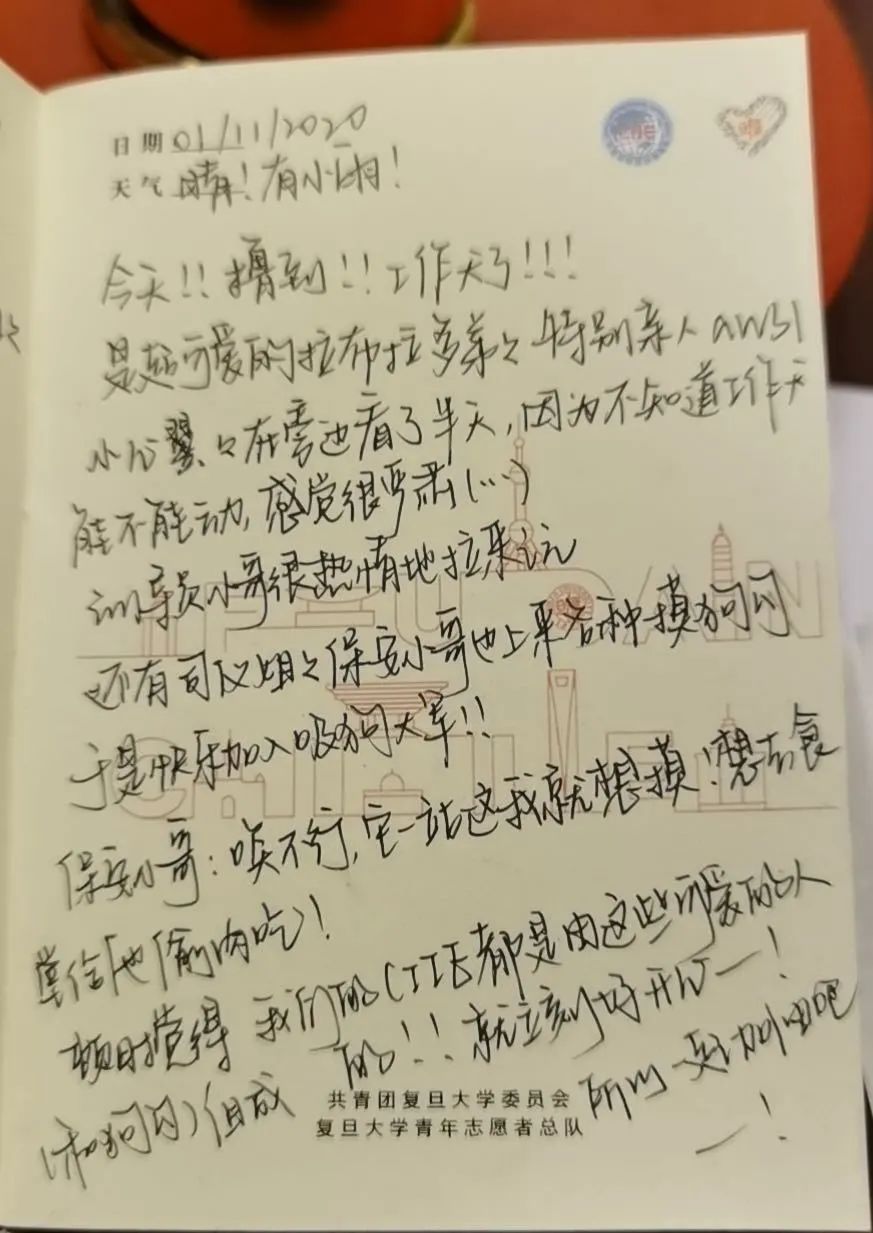 日期 01/11/2020
天气 晴！有小雨！
今天！！撸到！！工作犬了！！！
是超可爱的拉布拉多弟々 特别亲人 awsl
小心翼々在旁边看了半天，因为不知道工作犬
能不能动，感觉很严肃（…）
训导员小哥很热情地拉来玩
还有司仪姐々保安小哥也上来各种摸狗勾
于是快乐加入吸狗大军！！
保安小哥：唉不行，它一站这我就想摸！想去食
堂给他偷肉吃！
顿时觉得 我们的CIIE都是由这些可爱的人
（和狗勾）组成 的！！就立刻好开心一！
所以一起加油吧
一！
共青团复旦大学委员会
复旦大学青年志愿者总队
FUDAN